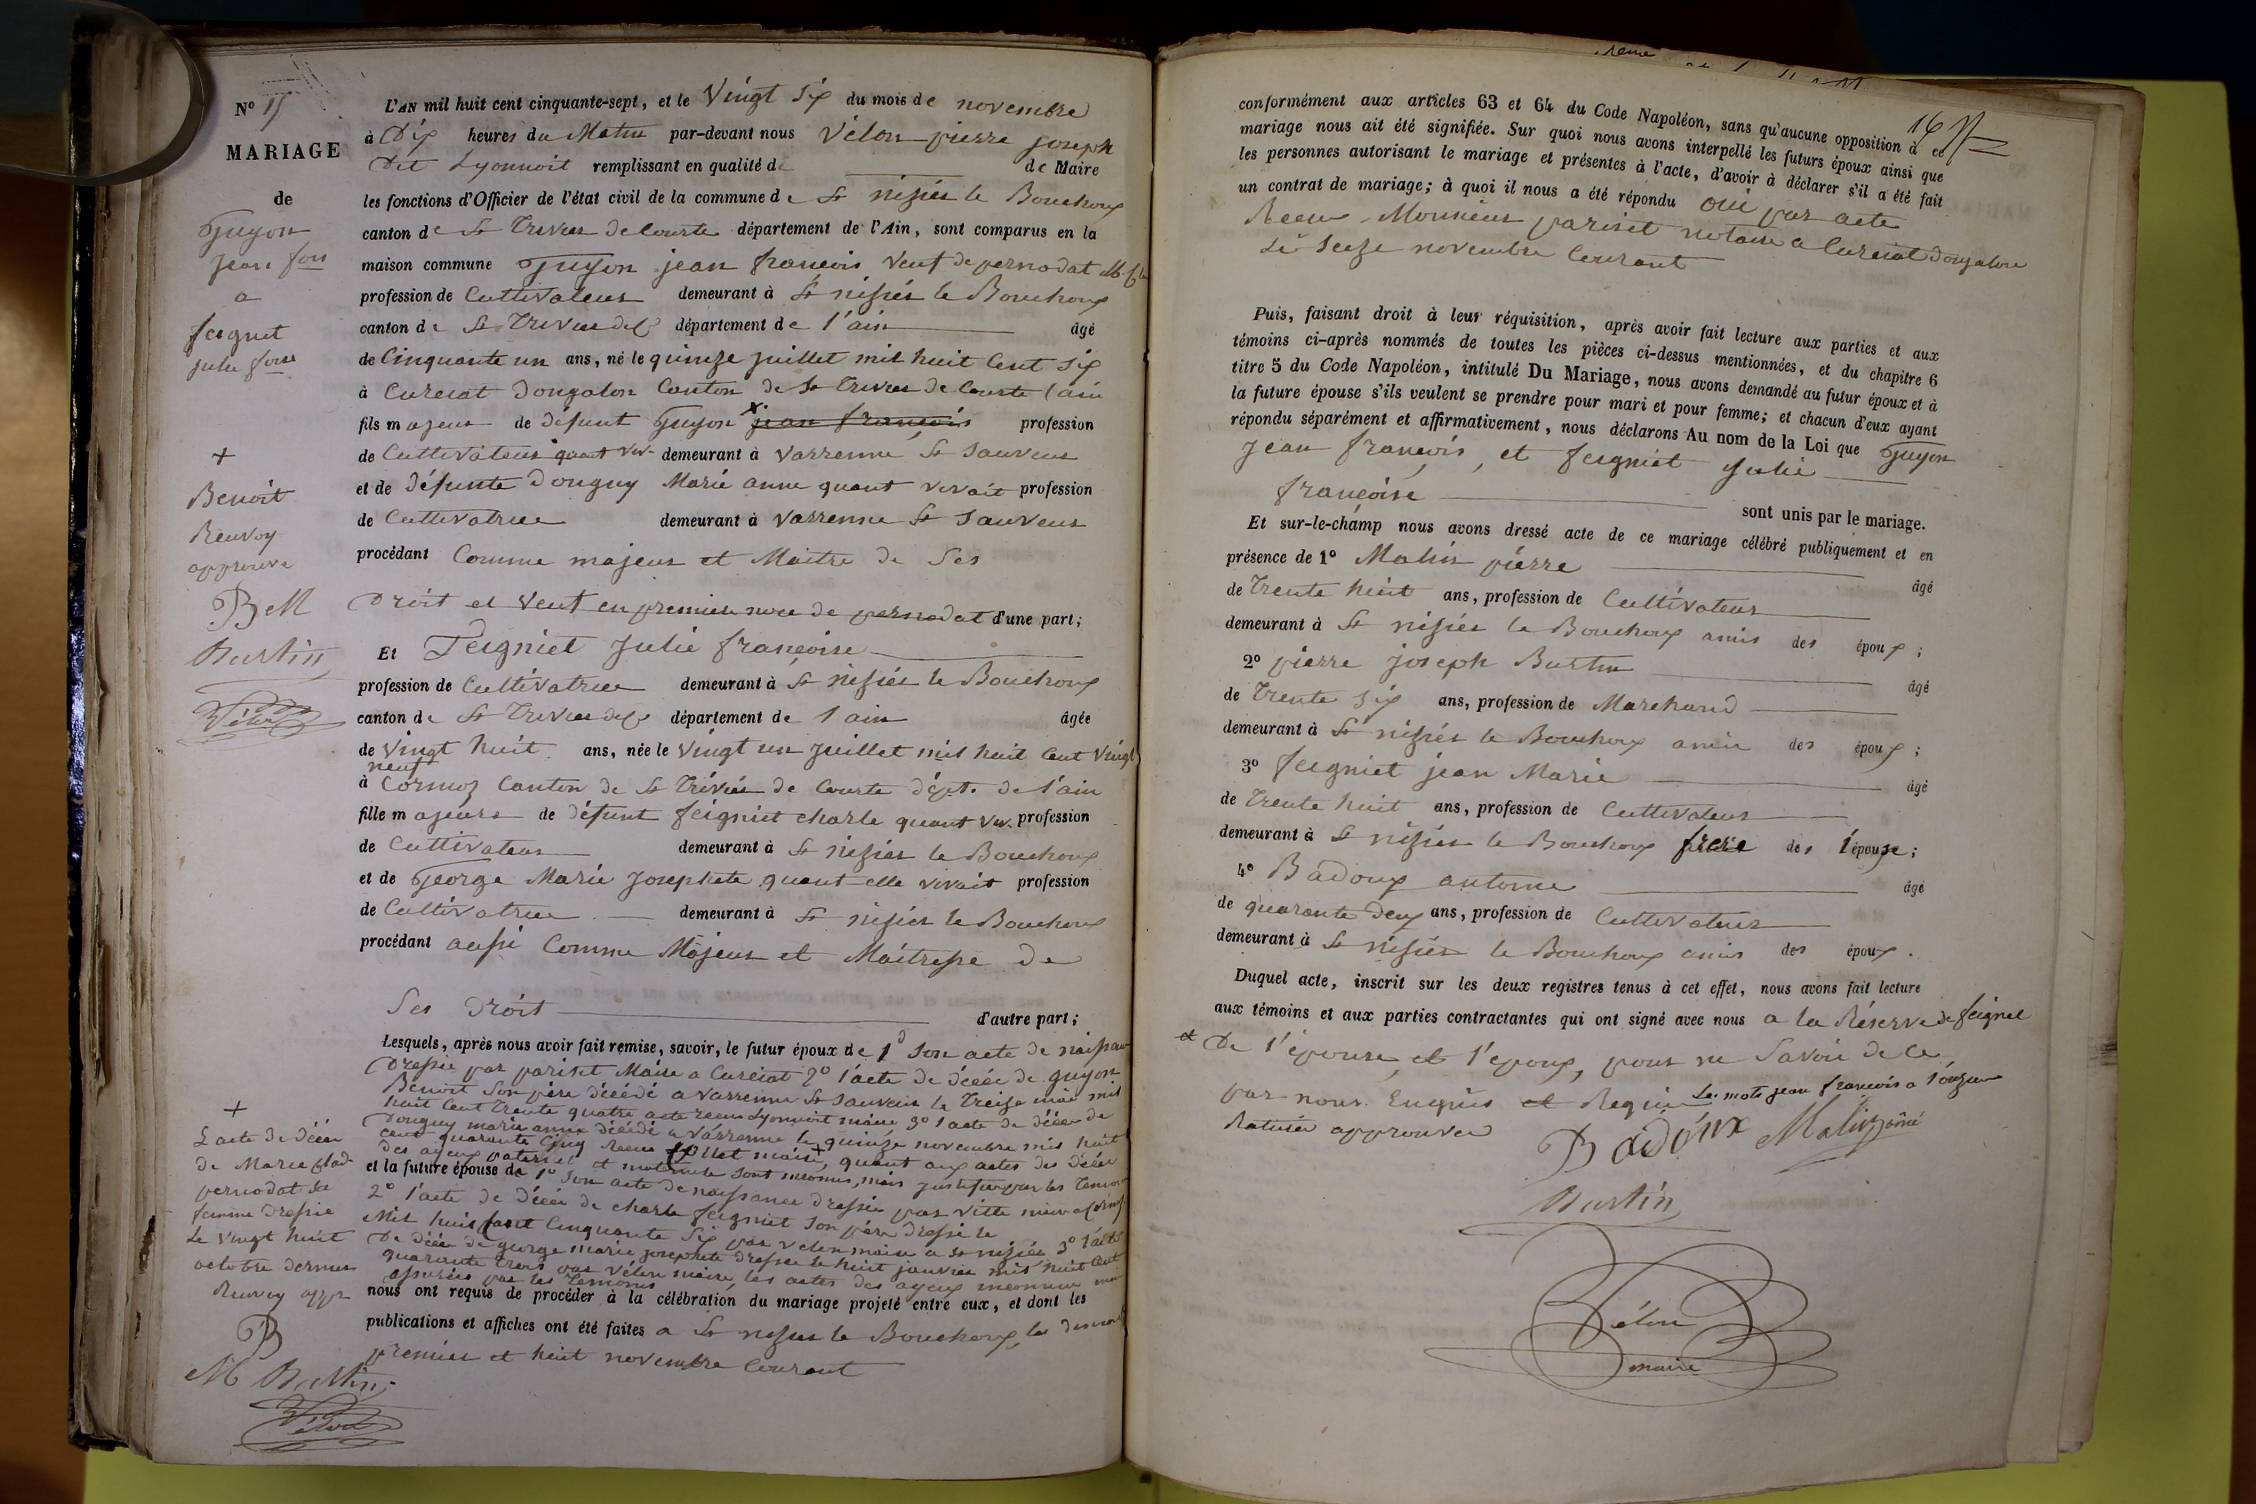 N° 15
MARIAGE
de
Guyon
jean fois
a
feignet
julie foise
+
Benoit
Renvoy
approuve
B M
Burtin
Vélon
+
L'acte de décé
de Marie
pernodat sa
femme dressie
Le vingt huit
octobre dernier
Renvoy app
B
M Burtin
Vélon
L'AN mil huit cent cinquante-sept, et le Vingt Six du mois de novembre
à Dix heures du Matin par-devant nous Vélon pierre joseph
dit Lyonnoit remplissant en qualité de de Maire
les fonctions d'Officier de l'état civil de la commune de St nisier le Bouchoux
canton de St Trivier de Courte département de l'Ain, sont comparus en la
maison commune Guyon jean francois Veuf de pernodat
profession de Cultivateur demeurant à St nisier le Bouchoux
canton de St Trivier de C département de l'ain âgé
de Cinquante un ans, né le quinze juillet mil huit Cent Six
à Curciat Dongalon Canton de St Trivier de Courte (ain
fils majeur de défunt Guyon jean francois profession
de Cultivateur quant viv. demeurant à Varrenne St Sauveur
et de défunte Dongny Marie anne quant vivait profession
de Cultivatrice demeurant à Varrenne St Sauveur
procédant Comme majeur et Maitre de Ses
Droit et Veuf en premiere noce de pernodat d'une part;
Et Feigniet Julie francoise
profession de Cultivatrice demeurant à St nisier le Bouchoux
canton de St Trivier de C département de l'ain âgée
de Vingt huit ans, née le Vingt un juillet mil huit Cent Vingt
neuf
à Cormoz Canton de St Trivier de Courte dépt. de l'ain
fille majeure de défunt feigniet charle quant viv. profession
de Cultivateur demeurant à St nisier le Bouchoux
et de George Marie Josephete quant elle vivait profession
de Cultivatrice demeurant à St nisier le Bouchoux
procédant aussi Comme Majeur et Maitresse de
Ses Droit d'autre part;
Lesquels, après nous avoir fait remise, savoir, le futur époux de 1° Son acte de naissan
Dressie par pariset Maire a Curciat 2° l'acte de décée de guyon
Benoit Son père décédé a Varrenne St Sauveur le Treize mai mil
huit Cent Trente quatre acte recu Lyonnoit maire 3° l'acte de décée de
Dongny marie anne décédé a Varrenne le quinze novembre mil huit
cent quarante Cinq Recu maire, quant aux actes des décée
des ayeux paternel et maternelle sont inconnus, mais justifie par les Temoin
et la future épouse de 1° Son acte de naissance dressie par Vitte maire a Cormoz
2° l'acte de décée de charle feigniet Son père dressé le
Mil huit Cent Cinquante Six par Velon maire a St nisier 3° l'acte
De décée de george marie josephete dressee le huit janvier mil huit Cent
quarante trois par Vélon maire, les actes des ayeux inconnue
assurées par les Temoins
nous ont requis de procéder à la célébration du mariage projeté entre eux, et dont les
publications et affiches ont été faites a St nisier le Bouchoux, les dimanch
premier et huit novembre Courant
16
conformément aux articles 63 et 64 du Code Napoléon, sans qu'aucune opposition à ce
mariage nous ait été signifiée. Sur quoi nous avons interpellé les futurs époux ainsi que
les personnes autorisant le mariage et présentes à l'acte, d'avoir à déclarer s'il a été fait
un contrat de mariage; à quoi il nous a été répondu oui par acte
Recu Monsieur pariset notaire a Curciat Dongalon
Le Seize novembre Courant
Puis, faisant droit à leur réquisition, après avoir fait lecture aux parties et aux
témoins ci-après nommés de toutes les pièces ci-dessus mentionnées, et du chapitre 6
titre 5 du Code Napoléon, intitulé Du Mariage, nous avons demandé au futur époux et à
la future épouse s'ils veulent se prendre pour mari et pour femme; et chacun d'eux ayant
répondu séparément et affirmativement, nous déclarons Au nom de la Loi que Guyon
Jean francois, et feigniet Julie
francoise sont unis par le mariage.
Et sur-le-champ nous avons dressé acte de ce mariage célébré publiquement et en
présence de 1° Malin pierre âgé
de Trente huit ans, profession de Cultivateur
demeurant à St nisier le Bouchoux amis des époux;
2° pierre joseph Burtin âgé
de Trente Six ans, profession de Marchand
demeurant à St nisier le Bouchoux amis des époux;
3° feigniet jean Marie âgé
de Trente huit ans, profession de Cultivateur
demeurant à St nisier le Bouchoux frere de l'épouse;
4° Badoux antoine âgé
de quarante deux ans, profession de Cultivateur
demeurant à St nisier le Bouchoux amis des époux.
Duquel acte, inscrit sur les deux registres tenus à cet effet, nous avons fait lecture
aux témoins et aux parties contractantes qui ont signé avec nous a la Réserve de feignet
et De l'épouse, et l'epoux, pour ne Savoir de ce
par nous Enquis et Requis Les mots jean francois a l'onze
Raturée approuvée
Badoux Malin aîné
Burtin
Vélon
maire